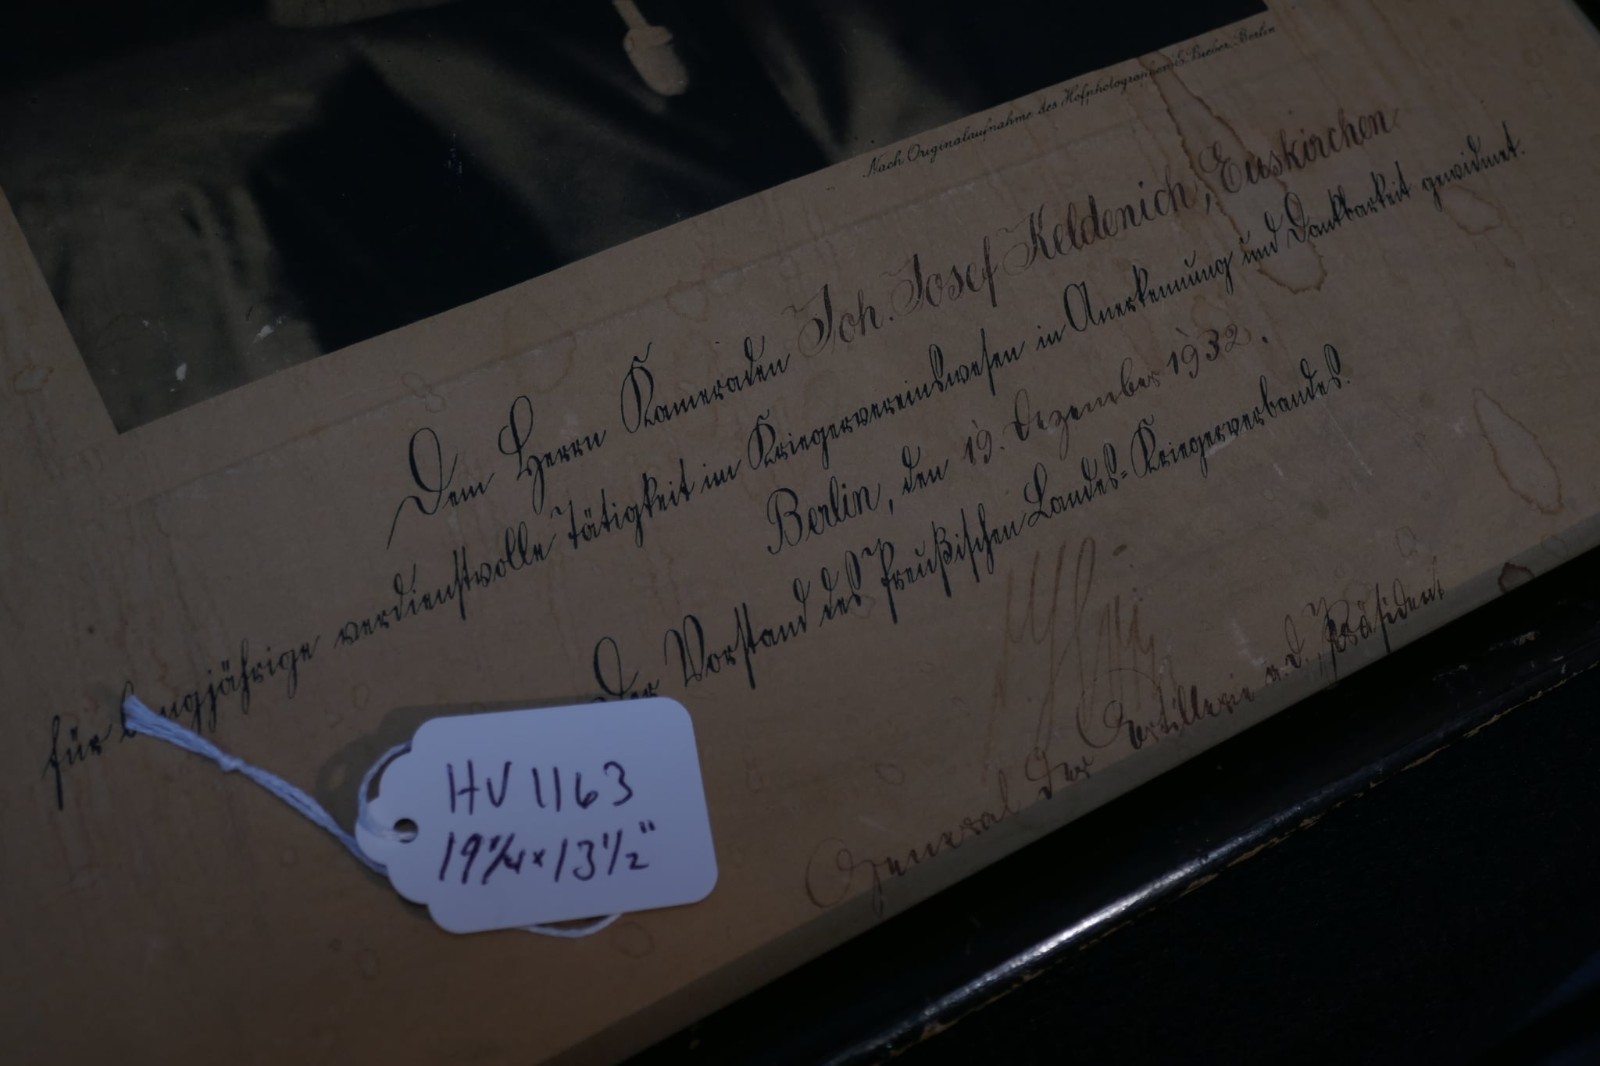 Nach Originalaufnahme des Hofphotographen E. Bieber, Berlin
Dem Herrn Kameraden Joh. Josef Keldenich, Euskirchen
für langjährige verdienstvolle Tätigkeit im Kriegervereinswesen in Anerkennung und Dankbarkeit gewidmet.
Berlin, den 19. Dezember 1932.
Der Vorstand des Preußischen Landes-Kriegerverbandes.
General der Artillerie a.d., Präsident
HV 1163
19 1/4 x 13 1/2"